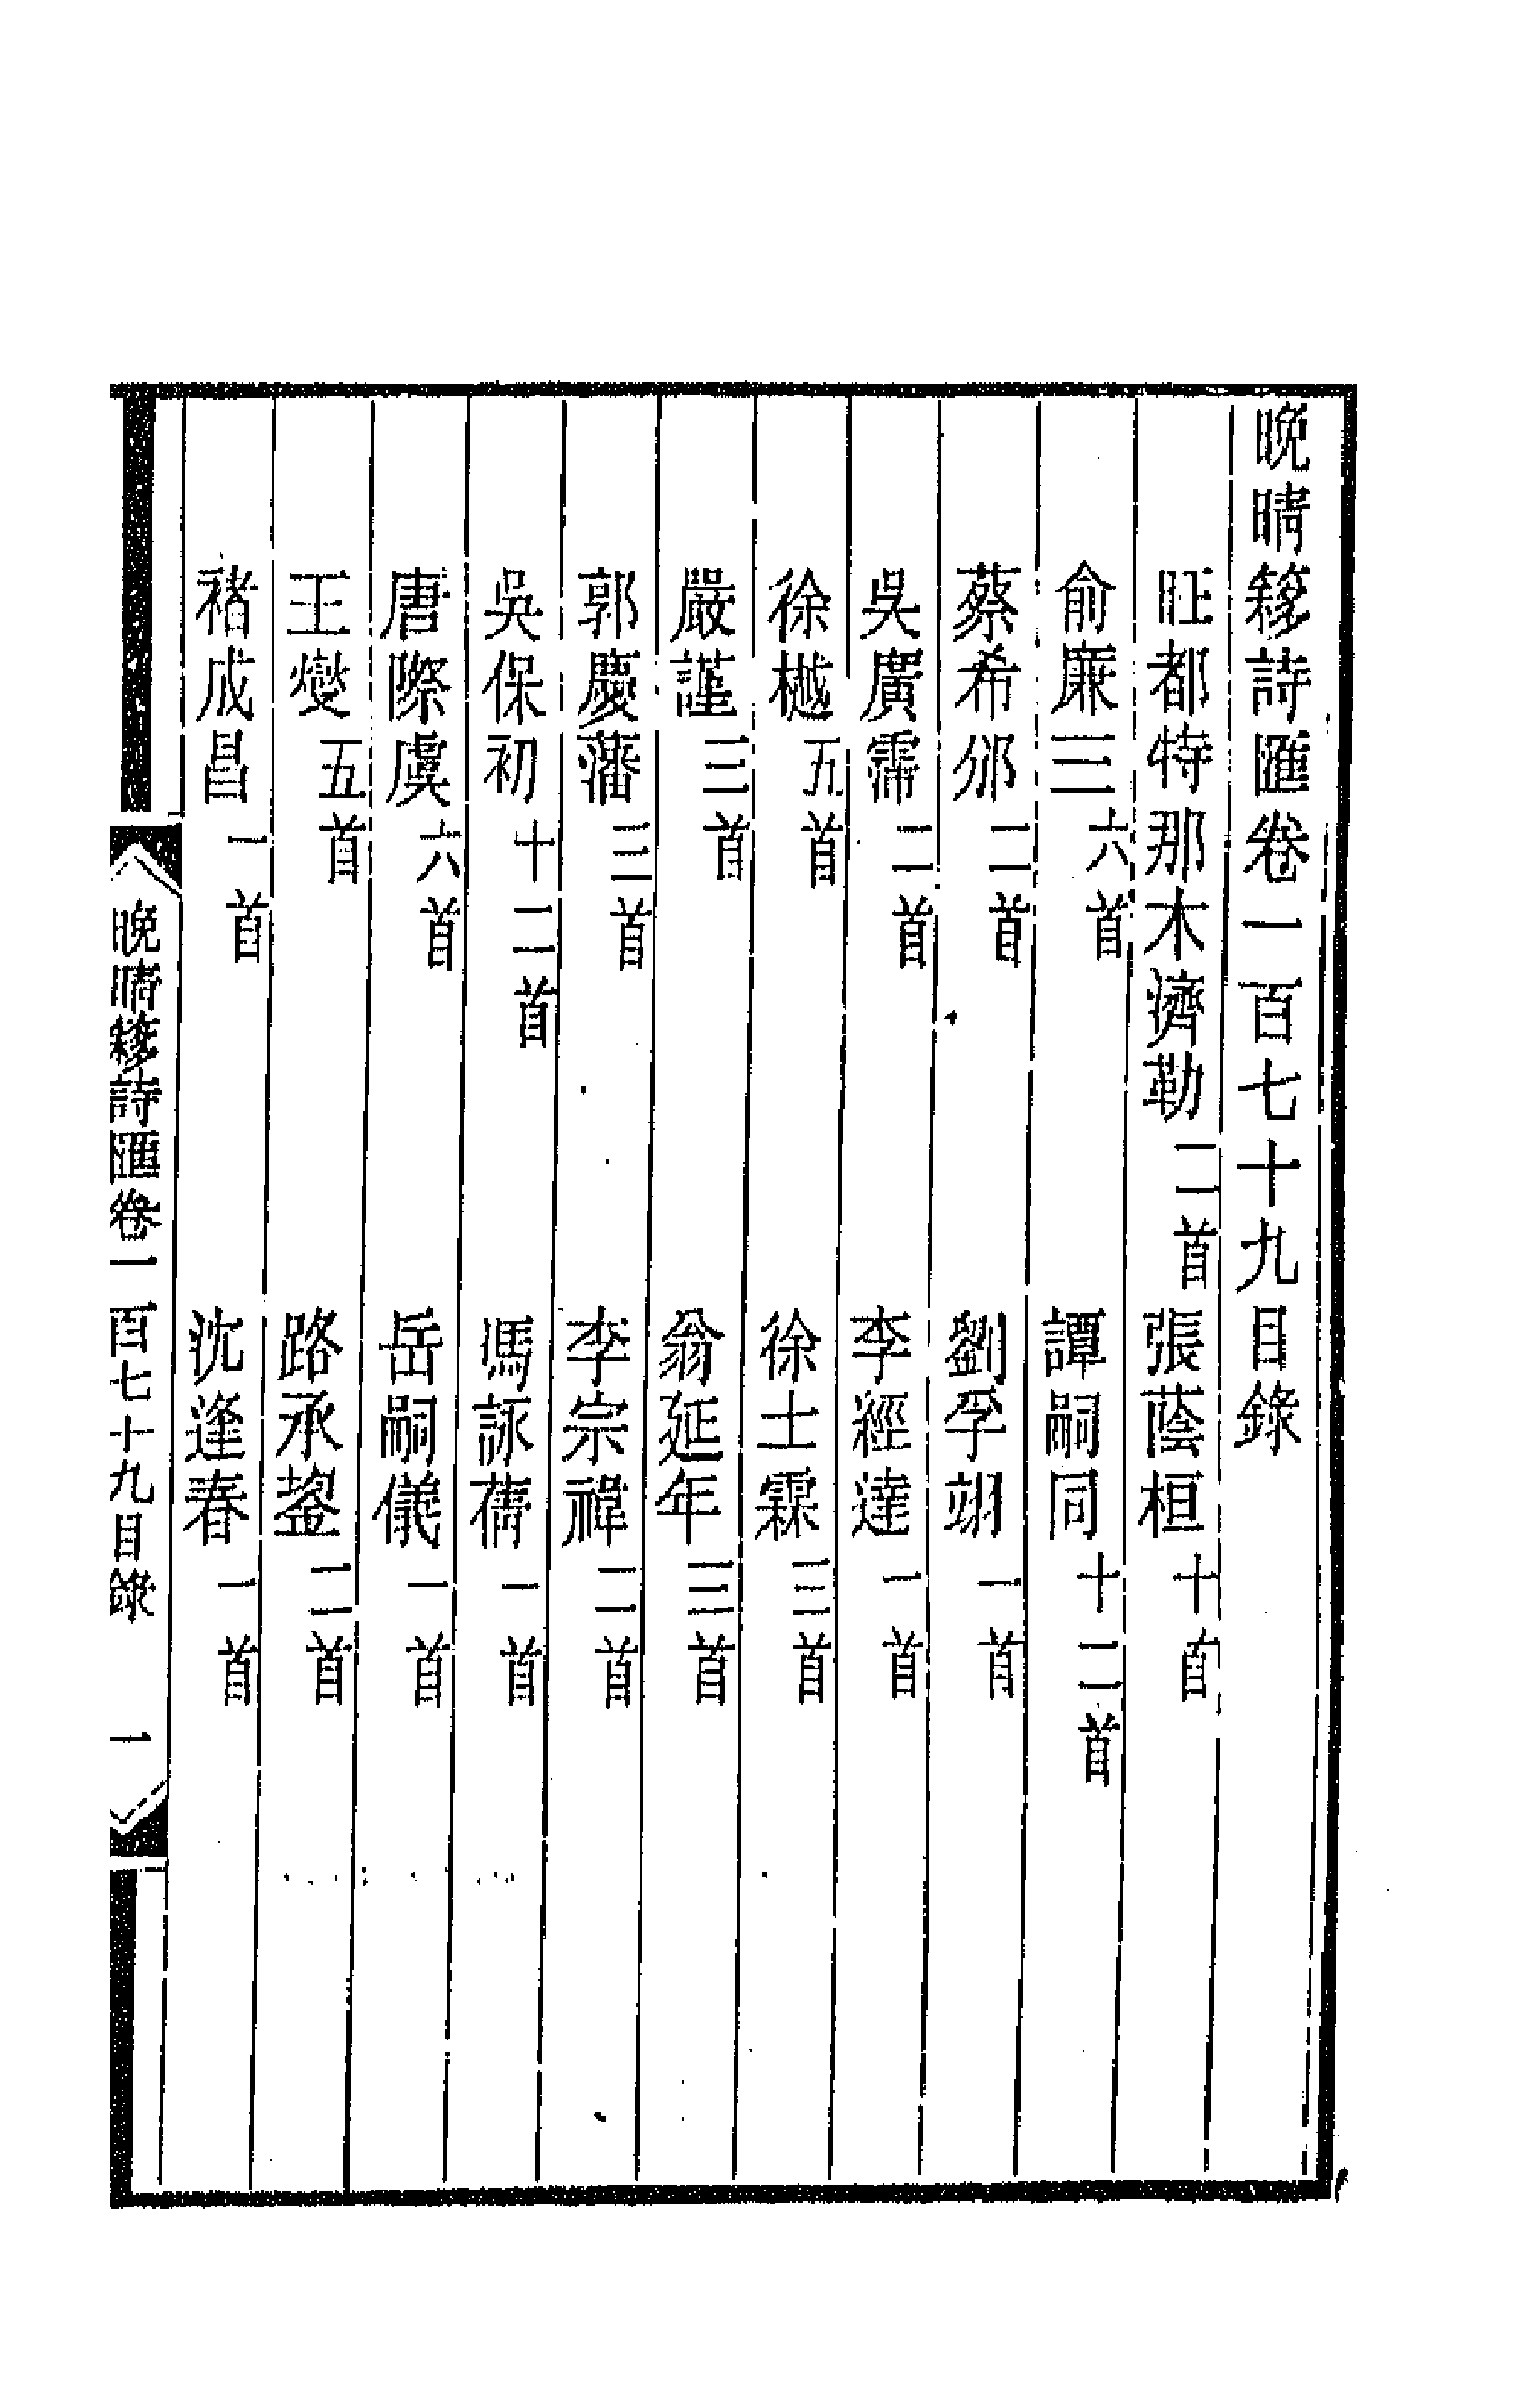 晚晴簃詩匯卷一百七十九目錄
旺都特那木濟勒二首　張蔭桓十首
俞廉三六首　譚嗣同十二首
蔡希邠二首　劉孚翊一首
吳廣霈二首　李經達一首
徐樾五首　徐士霖三首
嚴謹三首　翁延年三首
郭慶藩三首　李宗禕二首
吳保初十二首　馮詠蒨一首
唐際虞六首　岳嗣儀一首
王燮五首　路承鋆二首
褚成昌一首　沈逢春一首
晚晴簃詩匯卷一百七十九目錄　一